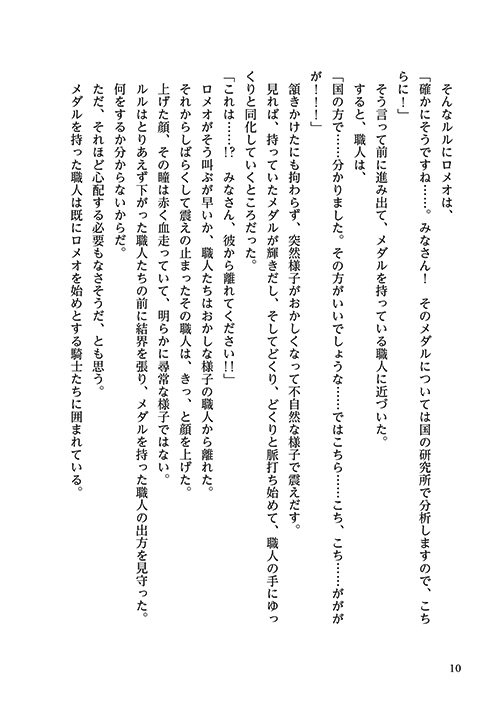 そんなルルにロメオは、
「確かにそうですね……。みなさん！　そのメダルについては国の研究所で分析しますので、こち
らに！」
そう言って前に進み出て、メダルを持っている職人に近づいた。
すると、職人は、
「国の方で……分かりました。その方がいいでしょうな……ではこちら……こち、こち……ががが
が！！！」
頷きかけたにも拘わらず、突然様子がおかしくなって不自然な様子で震えだす。
見れば、持っていたメダルが輝きだし、そしてどくり、どくりと脈打ち始めて、職人の手にゆっ
くりと同化していくところだった。
「これは……!?　みなさん、彼から離れてください!!」
ロメオがそう叫ぶが早いか、職人たちはおかしな様子の職人から離れた。
それからしばらくして震えの止まったその職人は、きっ、と顔を上げた。
上げた顔、その瞳は赤く血走っていて、明らかに尋常な様子ではない。
ルルはとりあえず下がった職人たちの前に結界を張り、メダルを持った職人の出方を見守った。
何をするか分からないからだ。
ただ、それほど心配する必要もなさそうだ、とも思う。
メダルを持った職人は既にロメオを始めとする騎士たちに囲まれている。
10